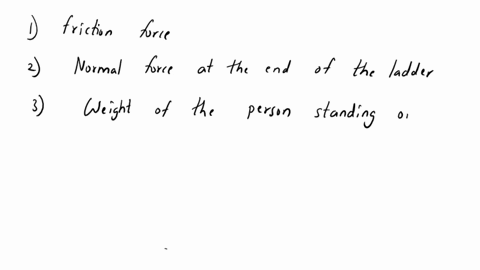 1) friction force
2) Normal force at the end of the ladder
3) Weight of the person standing